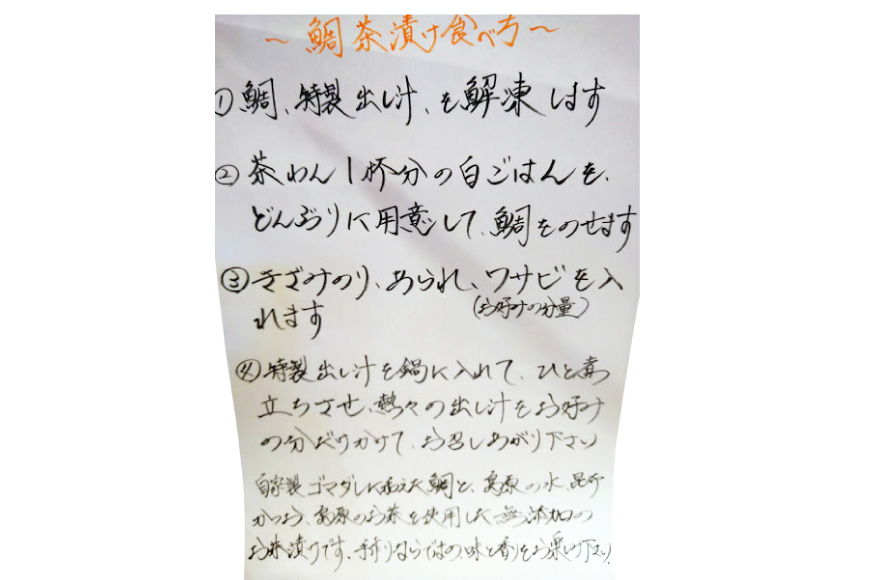 ～鯛茶漬け食べ方～
①鯛、特製出し汁、を解凍します
②茶わん1杯分の白ごはんを、
どんぶりに用意して、鯛をのせます
③きざみのり、あられ、ワサビを入
(お好みの分量)
れます
④特製出し汁を鍋に入れて、ひと煮
立ちさせ、熱々の出し汁をお好み
の分だけかけて、お召しあがり下さい
自家製ゴマダレに和えた鯛と、島原の水、昆布
かつお、島原のお茶を使用した無添加の
お茶漬けです。手作りならではの、味と香りをお楽しみ下さい。